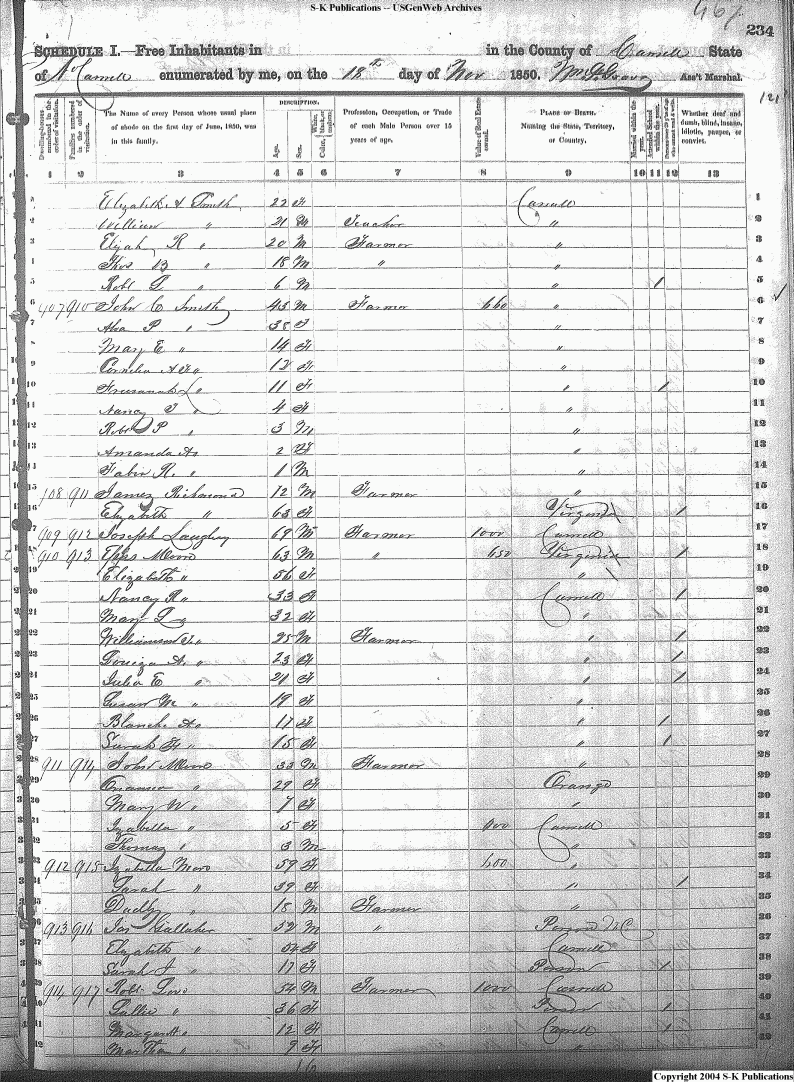 S-K Publications -- USGenWeb Archives
467
234
SCHEDULE I.—Free Inhabitants in in the County of Caswell State
of N Carolina enumerated by me, on the 18th day of Nov 1850. Wm P. Graves Ass't Marshal.
121
Dwelling-houses numbered in the order of visitation.
Families numbered in the order of visitation.
The Name of every Person whose usual place of abode on the first day of June, 1850, was in this family.
DESCRIPTION.
Age.
Sex.
Color, White, black, or mulatto.
Profession, Occupation, or Trade of each Male Person over 15 years of age.
Value of Real Estate owned.
PLACE OF BIRTH. Naming the State, Territory, or Country.
Married within the year.
Attended School within the year.
Persons over 20 y'rs of age who cannot read & write.
Whether deaf and dumb, blind, insane, idiotic, pauper, or convict.
1 2 3 4 5 6 7 8 9 10 11 12 13
1 Elizabeth A Smith 22 F Caswell 1
2 William " 21 M Teacher " 2
3 Elijah R " 20 M Farmer " 3
4 Thos B " 18 M " " 4
5 Robt 6 M " / 5
6 907 910 John C Smith 45 M Farmer 660 " 6
7 P " 38 F " 7
8 Mary E " 14 F " 8
9 Cornelia " 12 F " 9
10 " 11 F " / 10
11 Nancy " 4 F " 11
12 Robt P " 3 M " 12
13 Amanda 2 F " 13
14 R. " 1 M " 14
15 908 911 James Richmond 12 M Farmer " 15
16 Elizabeth " 63 F Virginia / 16
17 909 912 Joseph 69 M Farmer 1000 Caswell 17
18 910 913 Moore 63 M " 650 Virginia / 18
19 Elizabeth " 56 F " 19
20 Nancy R " 33 F Caswell / 20
21 Mary 32 F " 21
22 Williamson " 25 M Farmer " / 22
23 Louiza A. " 23 F " / 23
24 Julia E " 21 F " / 24
25 Susan M " 19 F " 25
26 Blanche A " 17 F " / 26
27 Sarah " 15 F " / 27
28 911 914 John Moore 33 M Farmer " 28
29 " 29 F Orange 29
30 Mary W " 7 F " 30
31 Izabella " 5 F 800 Caswell 31
32 Thomas " 3 M " 32
33 912 915 Izabella Moore 59 F 600 " 33
34 Sarah " 39 F " / 34
35 Dudley " 18 M Farmer " 35
36 913 916 Jas Gallaher 52 M " Person N C 36
37 Elizabeth " 54 F Caswell 37
38 Sarah J " 17 F Person / 38
39 914 917 Robt 54 M Farmer 1000 Caswell 39
40 Sallie " 36 F Person / 40
41 Margarett " 12 F Caswell / 41
42 Martha " 9 F " 42
Copyright 2004 S-K Publications